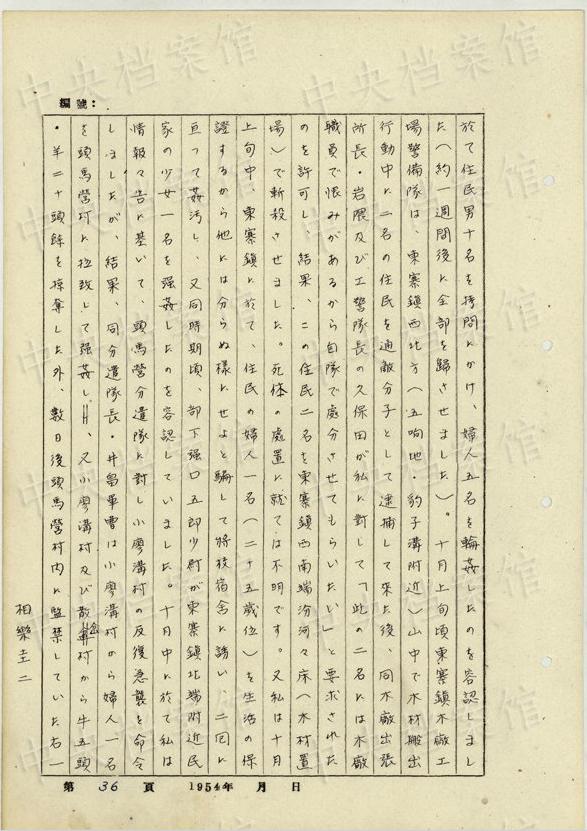 編號：
於て住民男十名を拷問にかけ、婦人五名を輪姦したのを容認しまし
た（約一週間後に全部を歸させました）。十月上旬頃東寨鎮木廠工
場警備隊は、東寨鎮西北方（五响地・豹子溝附近）山中で木材搬出
行動中に二名の住民を通敵分子として逮捕して来た後、同木廠出張
所長・岩隈及び工警隊長の久保田が私に對して「此の二名には木廠
職員で恨みがあるから自隊で處分させてもらいたい」と要求された
のを許可し、結果、この住民二名を東寨鎮西南端汾河々床（木材置
場）で斬殺させました。死体の處置に就ては不明です。又私は十月
上旬中、東寨鎮に於て、住民の婦人一名（二十五歳位）を生活の保
證するから他には分らぬ様にせよと騙して將校宿舍に誘い、二回に
亘って姦汚し、又同時期頃、部下强口五郎少尉が東寨鎮北端附近民
家の少女一名を强姦したのを容認していました。十月中に於て私は
情報々告に基いて、頭馬營分遣隊に對し小廖溝村の反復急襲を命令
しましたが、結果、同分遣隊長・井畠軍曹は小廖溝村から婦人一名
を頭馬營村に拉致して强姦し、又小廖溝村及び散岔村から牛五頭
・羊二十頭餘を掠奪した外、数日後頭馬營村内に監禁していた右一
相樂圭二
第 36 頁 1954年 月 日
中央档案馆